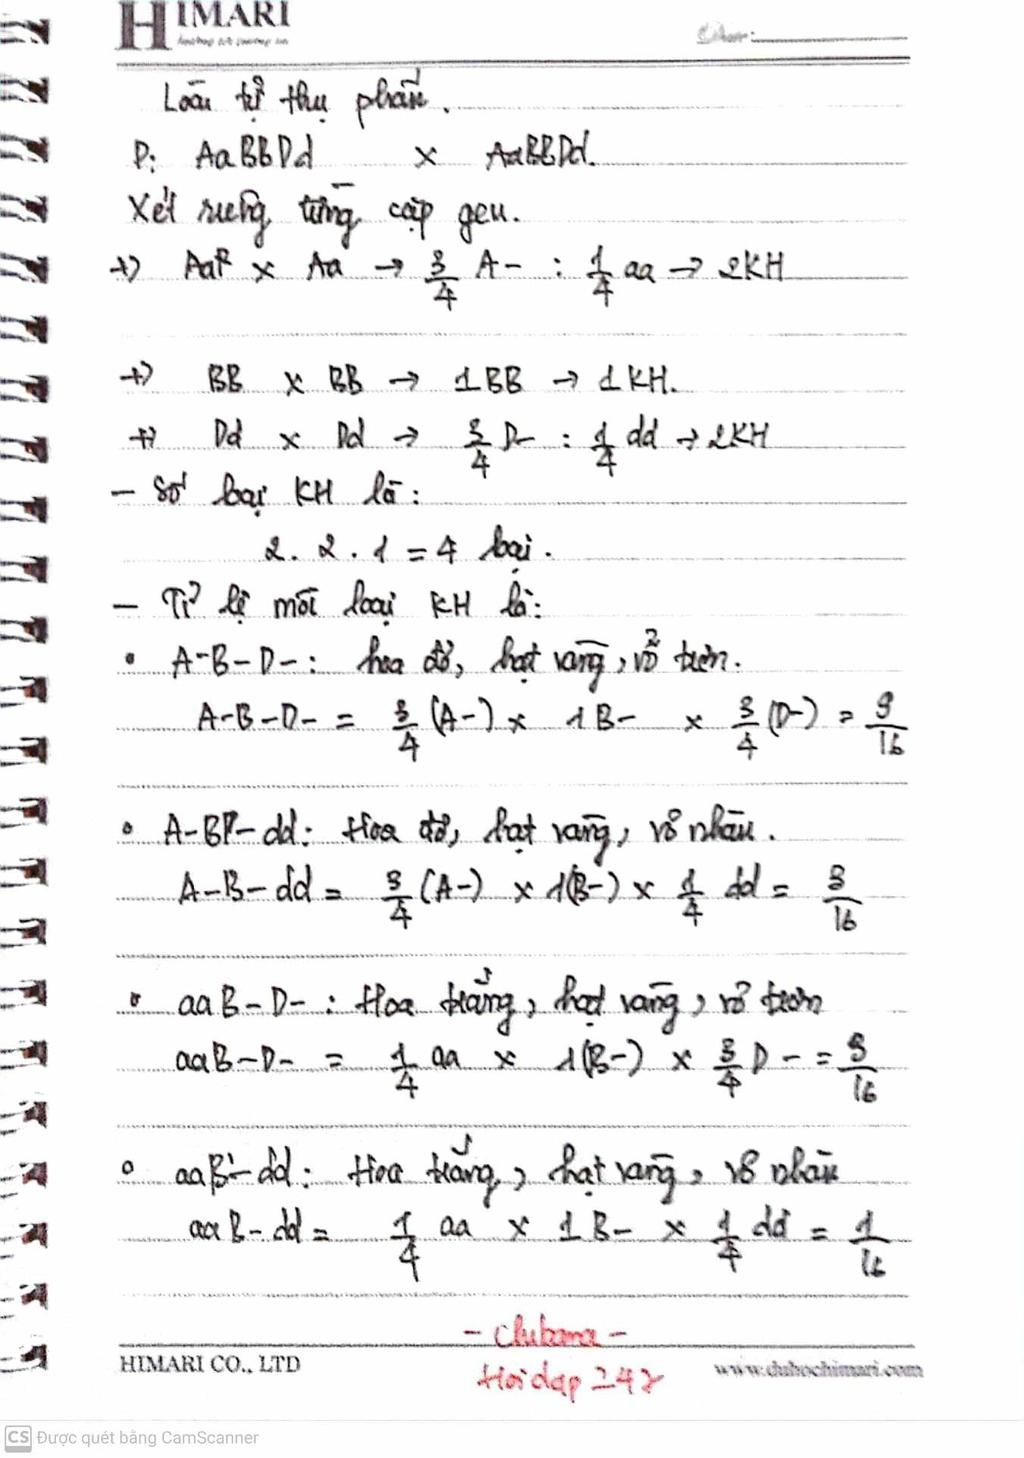 HIMARI
Loài tự thụ phấn.
P: AaBBDd x AaBBDd.
Xét riêng từng cặp gen.
+) Aa x Aa → 3/4 A- : 1/4 aa → 2KH
+) BB x BB → 1BB → 1KH.
+) Dd x Dd → 3/4 D- : 1/4 dd → 2KH
- Số loại KH là:
2. 2. 1 = 4 loại.
- Tỉ lệ mỗi loại KH là:
• A-B-D-: hoa đỏ, hạt vàng, vỏ trơn.
A-B-D- = 3/4 (A-) x 1B- x 3/4 (D-) = 9/16
• A-B-dd: Hoa đỏ, hạt vàng, vỏ nhăn.
A-B-dd = 3/4 (A-) x 1(B-) x 1/4 dd = 3/16
• aaB-D-: Hoa trắng, hạt vàng, vỏ trơn
aaB-D- = 1/4 aa x 1(B-) x 3/4 D- = 3/16
• aaB-dd: Hoa trắng, hạt vàng, vỏ nhăn
aaB-dd = 1/4 aa x 1B- x 1/4 dd = 1/16
- Clubana -
HIMARI CO., LTD
www.duhochimari.com
Hoidap 247
CS Được quét bằng CamScanner